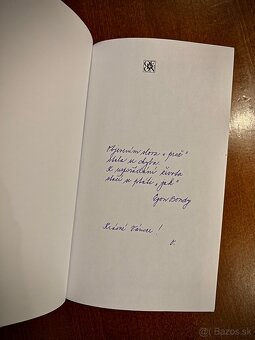 Objevením slova „proč"
stala se chyba
K uspořádání života
stačí se ptáti „jak"
Egon Bondy
Krásné Vánoce!
V.
© Bazos.sk